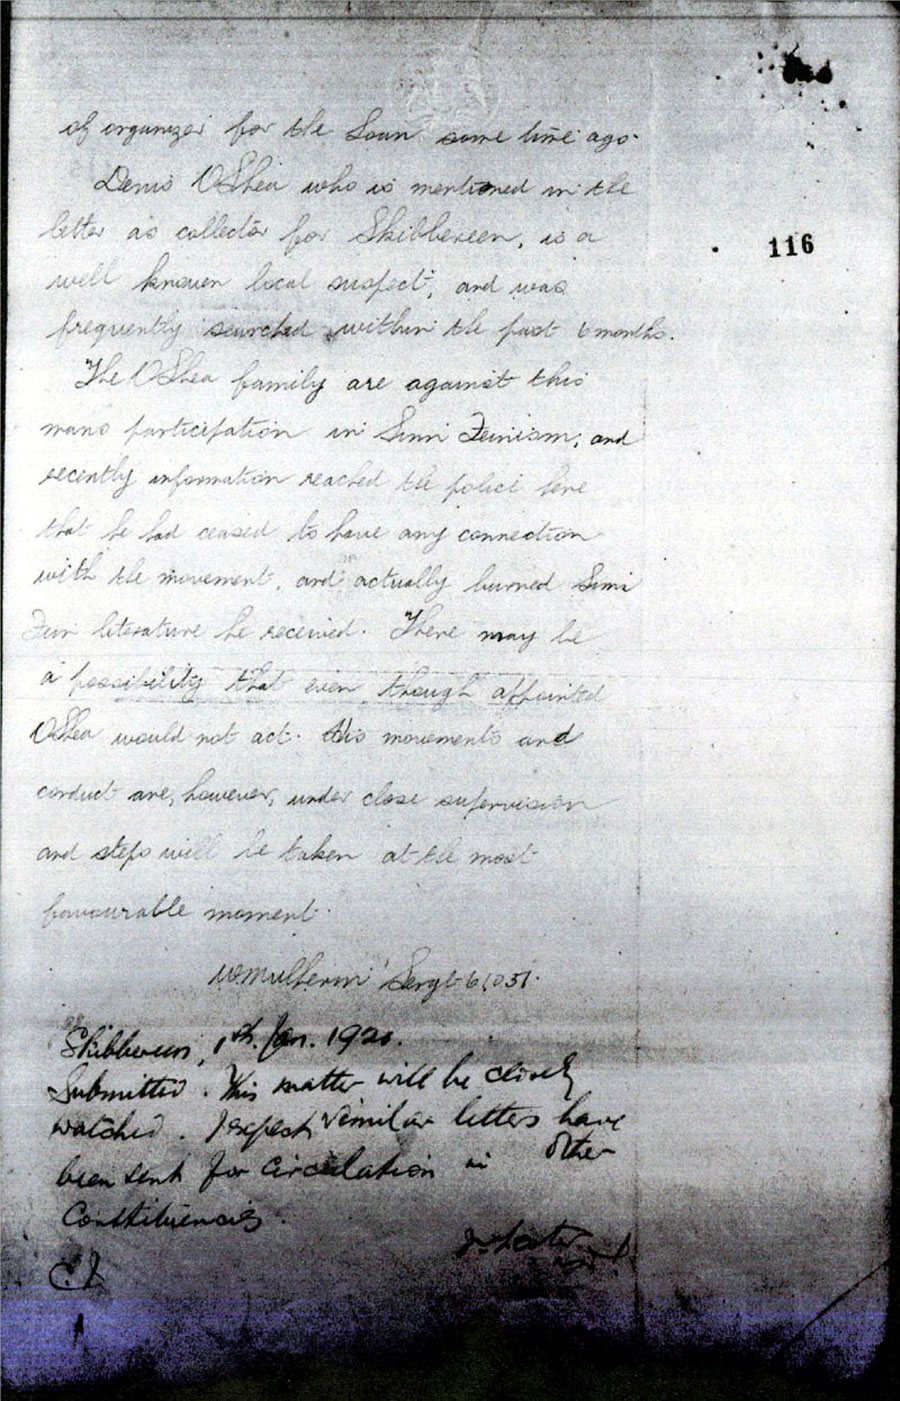 of organizer for the Loan some time ago.
Denis O'Shea who is mentioned in the
letter as collector for Skibbereen, is a
well known local suspect, and was
frequently searched within the past 6 months.
116
The O'Shea family are against this
mans participation in Sinn Feinism, and
recently information reached the police here
that he had ceased to have any connection
with the movement, and actually burned Sinn
Fein literature he received. There may be
a possibility that even though appointed
O'Shea would not act. His movements and
conduct are, however, under close supervision
and steps will be taken at the most
favourable moment.
Mulherin Sergt 61051.
Skibbereen, 1st. Jan. 1920.
Submitted. This matter will be closely
watched. I expect similar letters have
been sent for circulation in other
Constituencies.
C I